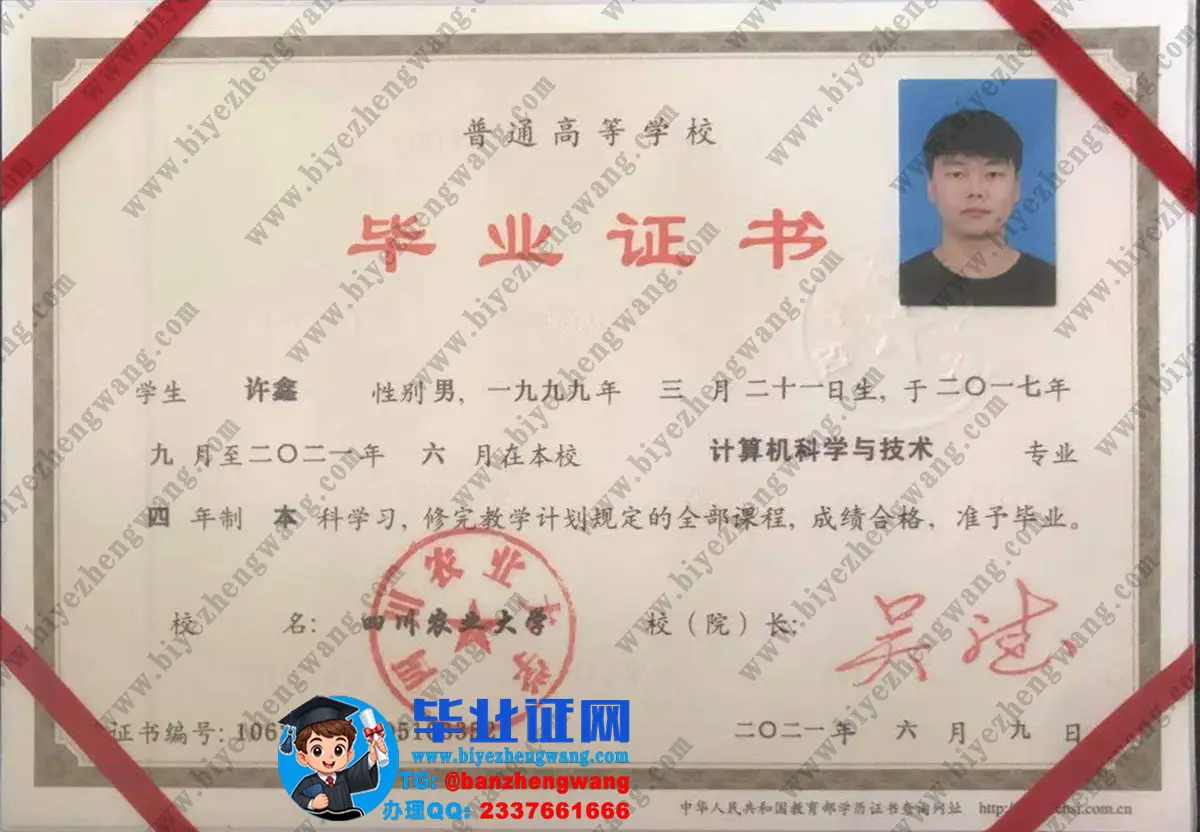 普通高等学校
毕业证书
学生 许鑫 性别 男，一九九九年 三 月 二十一日生，于二〇一七年
九 月至二〇二一年 六 月在本校 计算机科学与技术 专业
四 年制 本 科学习，修完教学计划规定的全部课程，成绩合格，准予毕业。
校 名： 四川农业大学 校（院）长：
四川农业大学
二〇二一年 六 月 九 日
证书编号：106
毕业证网
www.biyezhengwang.com
TG: @banzhengwang
办理QQ: 2337661666
中华人民共和国教育部学历证书查询网址 http://
chsi.com.cn
www.biyezhengwang.com